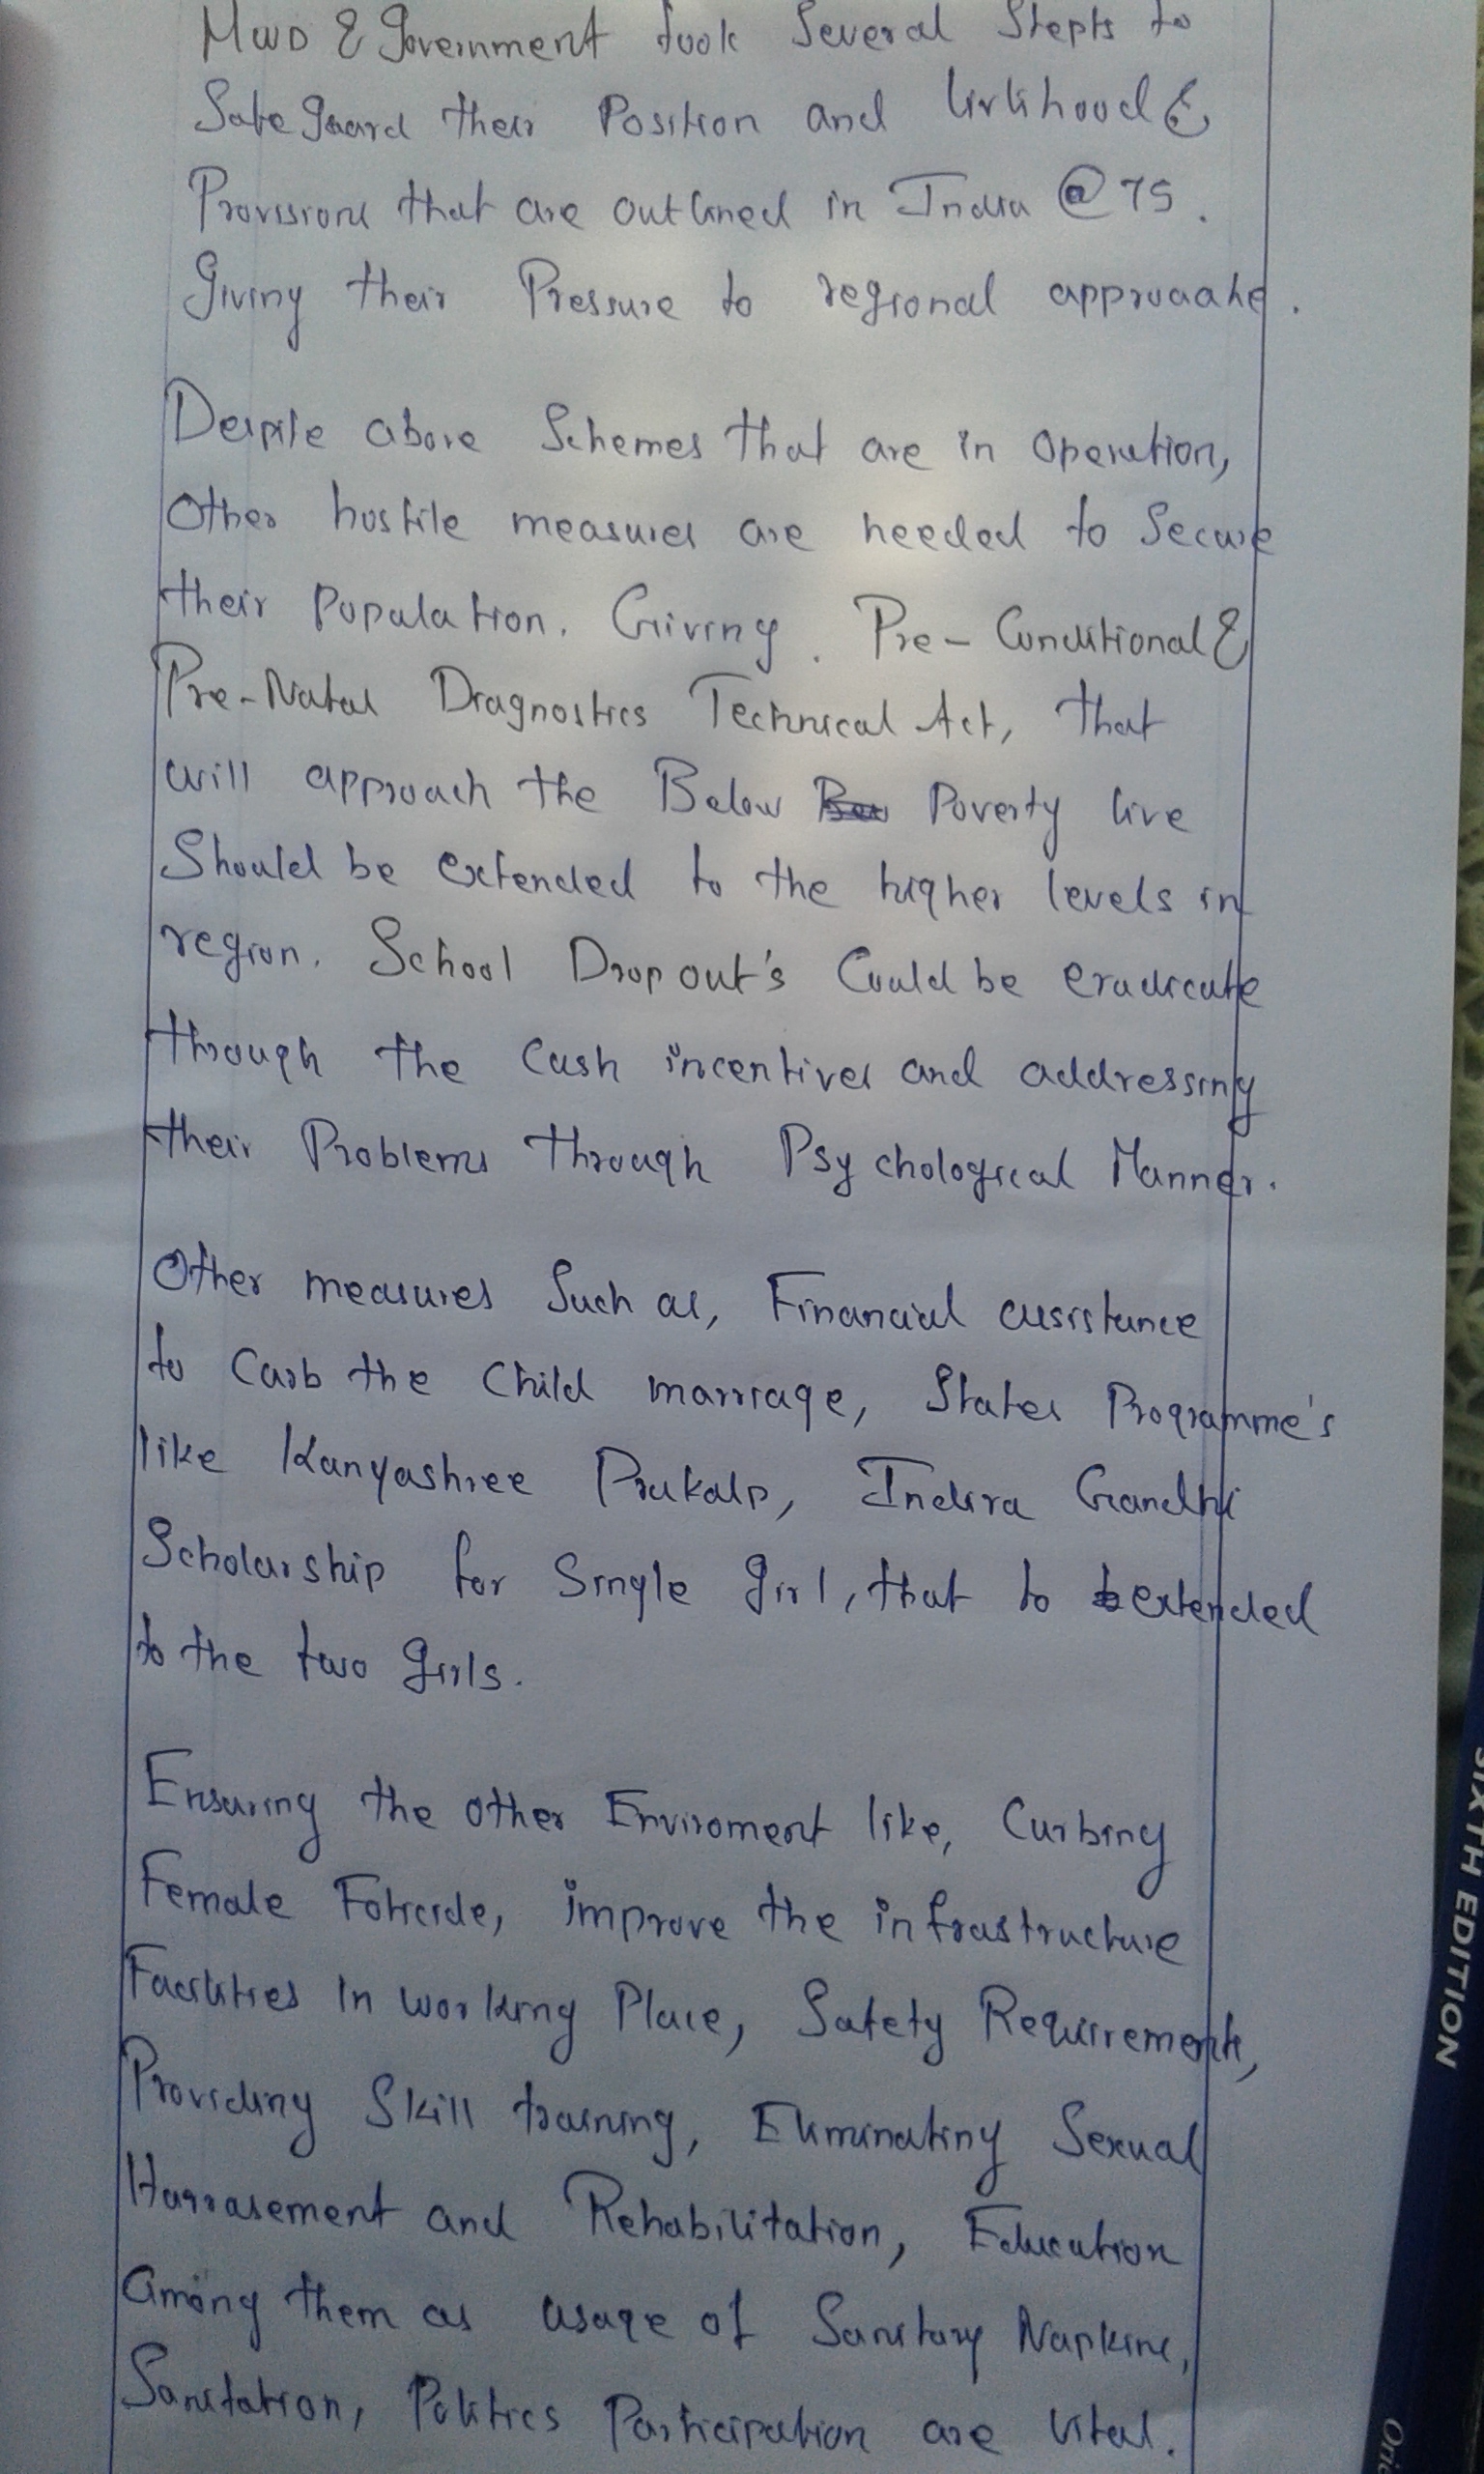 MWD & Government took Several Steps to
Safe Guard their Position and livlihood &
Provisions that are outlined in India @ 75.
Giving their Pressure to regional approache.
Despite above Schemes that are in Operation,
Other hostile measures are needed to Secure
their Population. Giving. Pre-Conditional &
Pre-Natal Diagnostics Technical Act, that
will approach the Below Poverty live
Should be extended to the higher levels in
region. School Dropout's Could be eradicate
through the Cash incentives and addressing
their Problems through Psychological Manner.
Other measures Such as, Financial assistance
to Carb the Child marriage, States Programme's
like Kanyashree Prakalp, Indira Gandhi
Scholarship for Single girl, that to extended
to the two girls.
Ensuring the other Enviroment like, Curbing
Female Foticide, improve the infrastructure
Facilities in working Place, Safety Requirements,
Providing Skill training, Eliminating Sexual
Harrasement and Rehabilitation, Education
among them as usage of Sanitary Napkins,
Sanitation, Politics Participation are Vital.
SIXTH EDITION